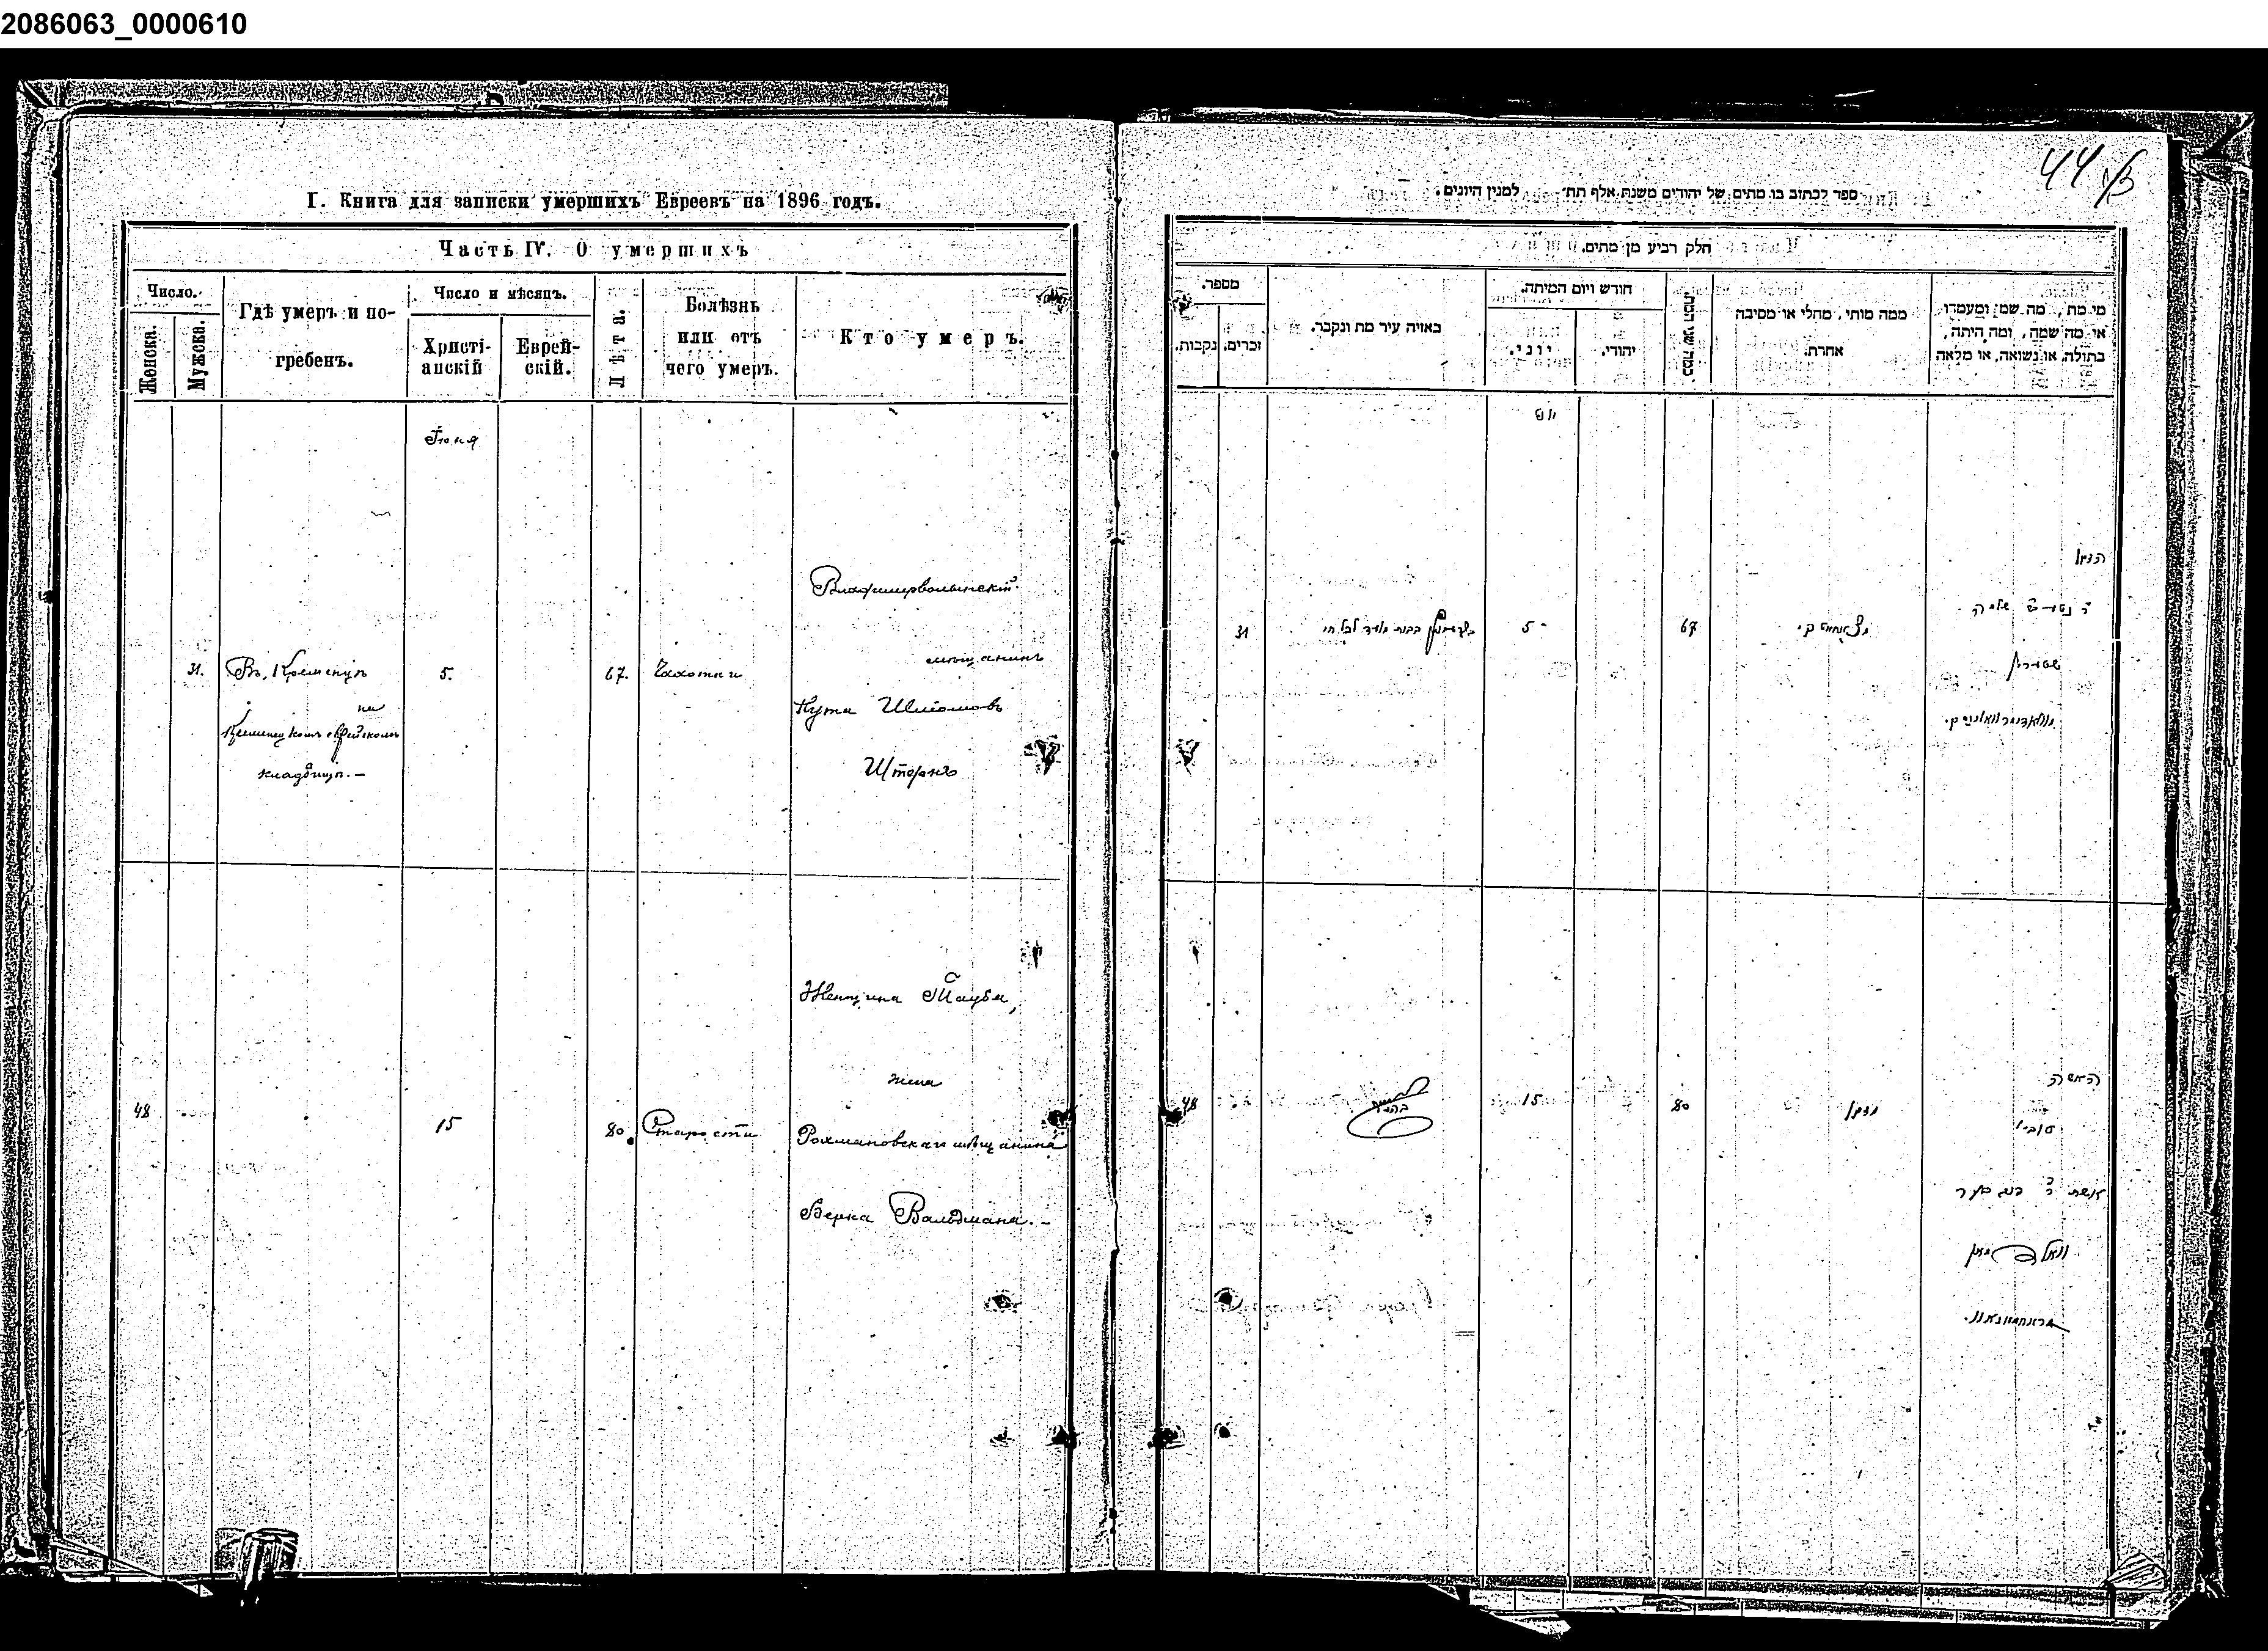 2086063_0000610
I. Книга для записки умершихъ Евреевъ на 1896 годъ.
Часть IV. О умершихъ
Число.
Женска.
Мужска.
Гдѣ умеръ и погребенъ.
Число и мѣсяцъ.
Христіанскій
Еврейскій.
Лѣта.
Болѣзнь
или отъ
чего умеръ.
Кто умеръ.
Іюня
31.
Въ Кременцѣ
на
Кременецкомъ еврейскомъ
кладбищѣ.—
5.
67.
Чахотки
Владимирволынскій
мѣщанинъ
Нута Шліомовъ
Штернъ
48
15
80.
Старости
Женщина Тауба,
жена
Рохмановскаго мѣщанина
Берка Вальдмана.—
44
ספר לכתוב בו מתים של יהודים משנת אלף תת׳ למנין היונים.
חלק רביעי מן מתים.
מספר.
נקבות.
זכרים.
באויה עיר מת ונקבר.
חודש ויום המיתה.
יוני.
יהודי.
כמה שני המת.
ממה מותי, מחלי או מסיבה
אחרת.
מי מת, מה שמו ומעמדו
או מה שמה, ומה היתה,
בתולה, או נשואה, או מלאה
31
5
67
הזקן
שטערין
48
15
80
מזקן
האשה
טובי
אשת ר׳ דוב בער
וואלדמאן